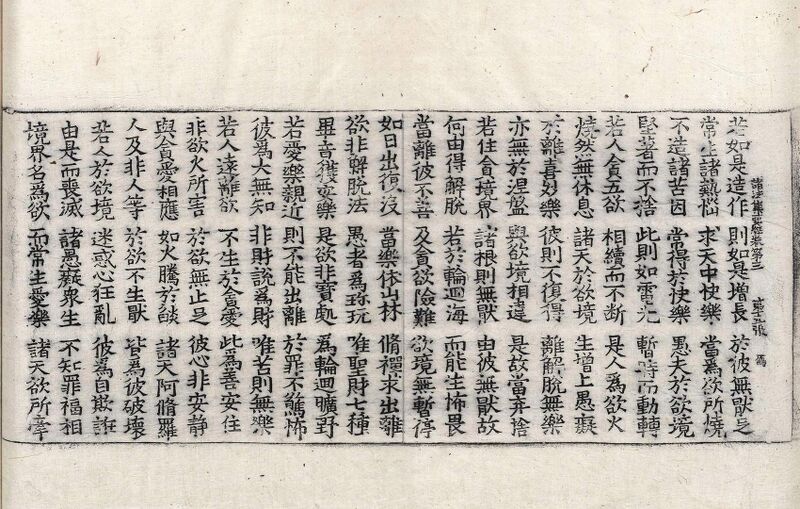 若如是造作 則如是增長 於彼無猒足
諸法集要經卷第三 張 馮
常生諸熱惱 求天中快樂 當為欲所燒
不造諸苦因 常得於快樂 愚夫於欲境
堅著而不捨 此則如電光 暫時而動轉
若人貪五欲 相續而不断 是人為欲火
燒然無休息 諸天於欲境 生增上愚癡
於離喜妙樂 彼則不復得 離解脫無樂
亦無於涅盤 與欲境相違 是故當棄捨
若住貪境界 諸根則無猒 由彼無猒故
何由得解脫 若於輪迴海 而能生怖畏
當離彼不善 及貪欲險難 欲境無暫停
如日出復没 當樂依山林 脩禪求出離
欲非解脫法 愚者為珎玩 唯聖財七種
畢竟獲安樂 是欲非寶處 為輪迴曠野
若愛樂親近 則不能出離 於罪不驚怖
彼為大無知 非財說為財 唯苦則無樂
若人遠離欲 不生於貪愛 此為善安住
非欲火所害 於欲無止足 彼心非安静
與貪愛相應 如火騰於焰 諸天阿脩羅
人及非人等 於欲不生猒 皆為彼破壞
若人於欲境 迷惑心狂亂 彼為自欺誑
由是而喪滅 諸愚癡衆生 不知罪福相
境界名為欲 而常生愛樂 諸天欲所牽